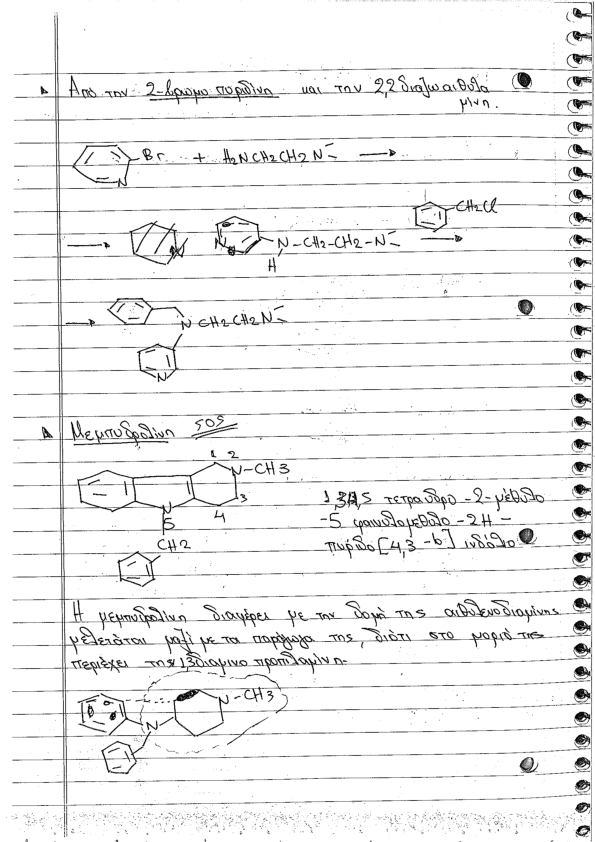 Από την 2-βρωμο πυριδίνη και την 2,2 διαζω αιθυλα
μίνη.
Br + H2NCH2CH2N
N
CH2Cl
N N-CH2-CH2-N
H
N CH2CH2N
N
Μεμπυδρολίνη SOS
1 2
N-CH3
3
N
5 4
CH2
τετραυδρο -2- μέθυλο
-5 φαινυλομεθυλο -2H -
πυρίδο [4,3 -b] ινδόλο
Η μεμπυδρολίνη διαφέρει με την δομή της αιθυλενοδιαμίνης
μελετάται μαζί με τα παράγωγα της, διότι στο μοριό της
περιέχει της 1,3διαμινο προπιλαμίνη.
N-CH3
N